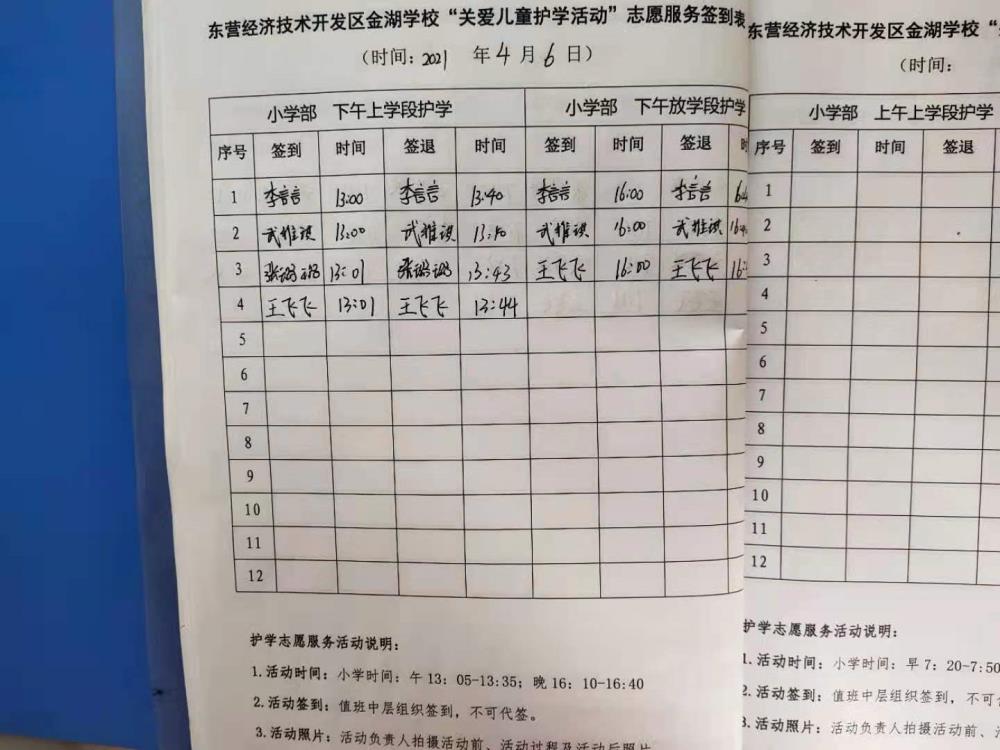 东营经济技术开发区金湖学校“关爱儿童护学活动”志愿服务签到表
（时间：2021 年 4 月 6 日）
小学部 下午上学段护学 小学部 下午放学段护学
序号 签到 时间 签退 时间 签到 时间 签退 时
1 李言言 13:00 李言言 13:40 李言言 16:00 李言言
2 13:00 13:40 16:00
3 张璐璐 13:01 张璐璐 13:43 王飞飞 16:00 王飞飞
4 王飞飞 13:01 王飞飞 13:44
5
6
7
8
9
10
11
12
护学志愿服务活动说明：
1.活动时间：小学时间：午 13：05-13:35；晚 16：10-16:40
2.活动签到：值班中层组织签到，不可代签。
3.活动照片：活动负责人拍摄活动前、活动过程及活动后照片
东营经济技术开发区金湖学校“
（时间：
小学部 上午上学段护学
序号 签到 时间 签退
1
2
3
4
5
6
7
8
9
10
11
12
护学志愿服务活动说明：
1.活动时间：小学时间：早 7：20-7:50
2.活动签到：值班中层组织签到，不可
3.活动照片：活动负责人拍摄活动前、